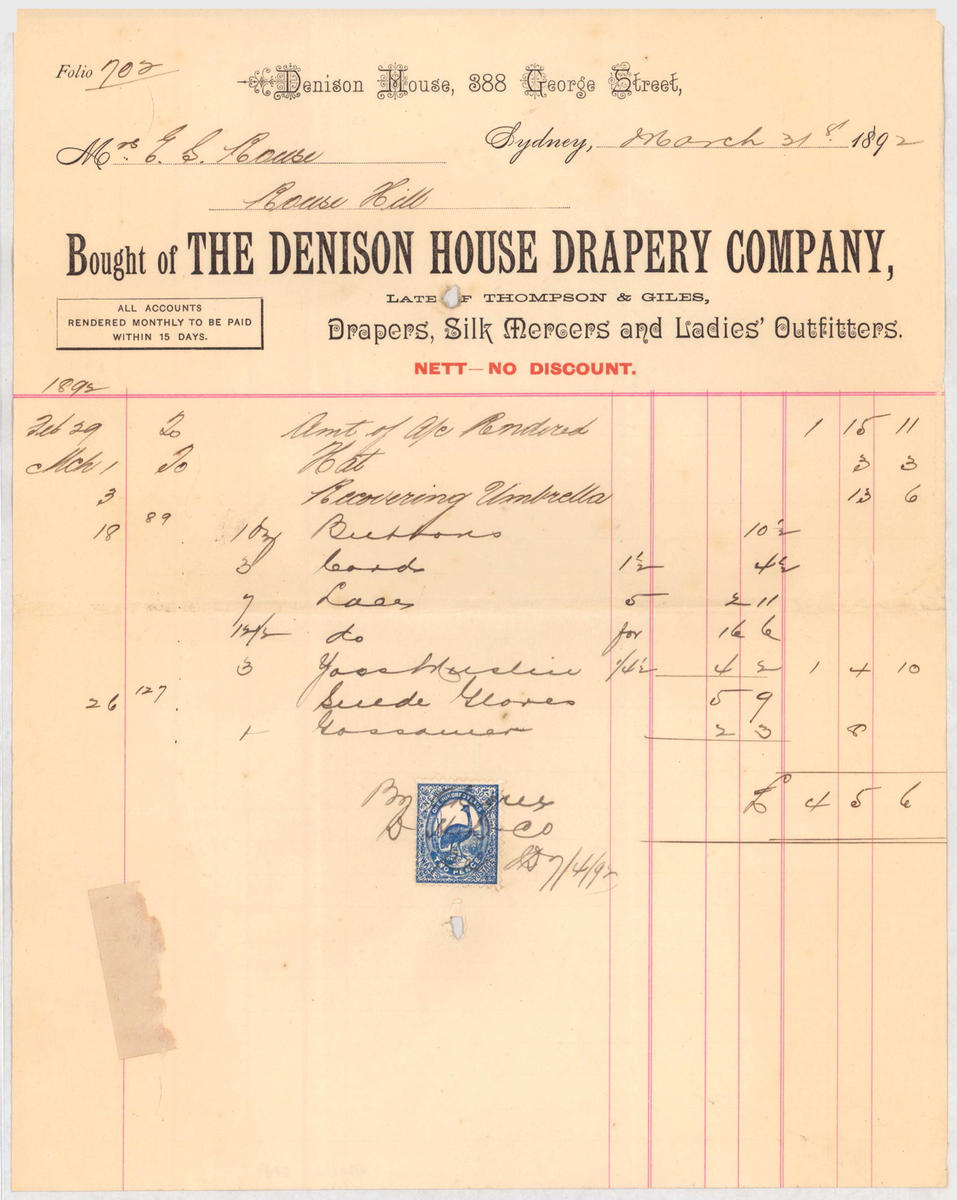 Folio 702
Denison House, 388 George Street,
Sydney, March 31st 1892
Mrs E. S. Rouse
Rouse Hill
Bought of THE DENISON HOUSE DRAPERY COMPANY,
LATE OF THOMPSON & GILES,
ALL ACCOUNTS
RENDERED MONTHLY TO BE PAID
WITHIN 15 DAYS.
Drapers, Silk Mercers and Ladies' Outfitters.
NETT—NO DISCOUNT.
1892
Feb 29 To Amt of A/c Rendered 1 15 11
Mch 1 To Hat 3 3
3 Recovering Umbrella 13 6
18 89 1 Dz Buttons 10½
3 Cord 1½ 4½
7 Lace 5 2 11
12½ do for 16 6
3 Muslin 1/4½ 4 2 1 4 10
26 127 Suede Gloves 5 9
1 Gossamer 2 3 8
£ 4 5 6
By
D Co
7/4/92
TWO PENCE